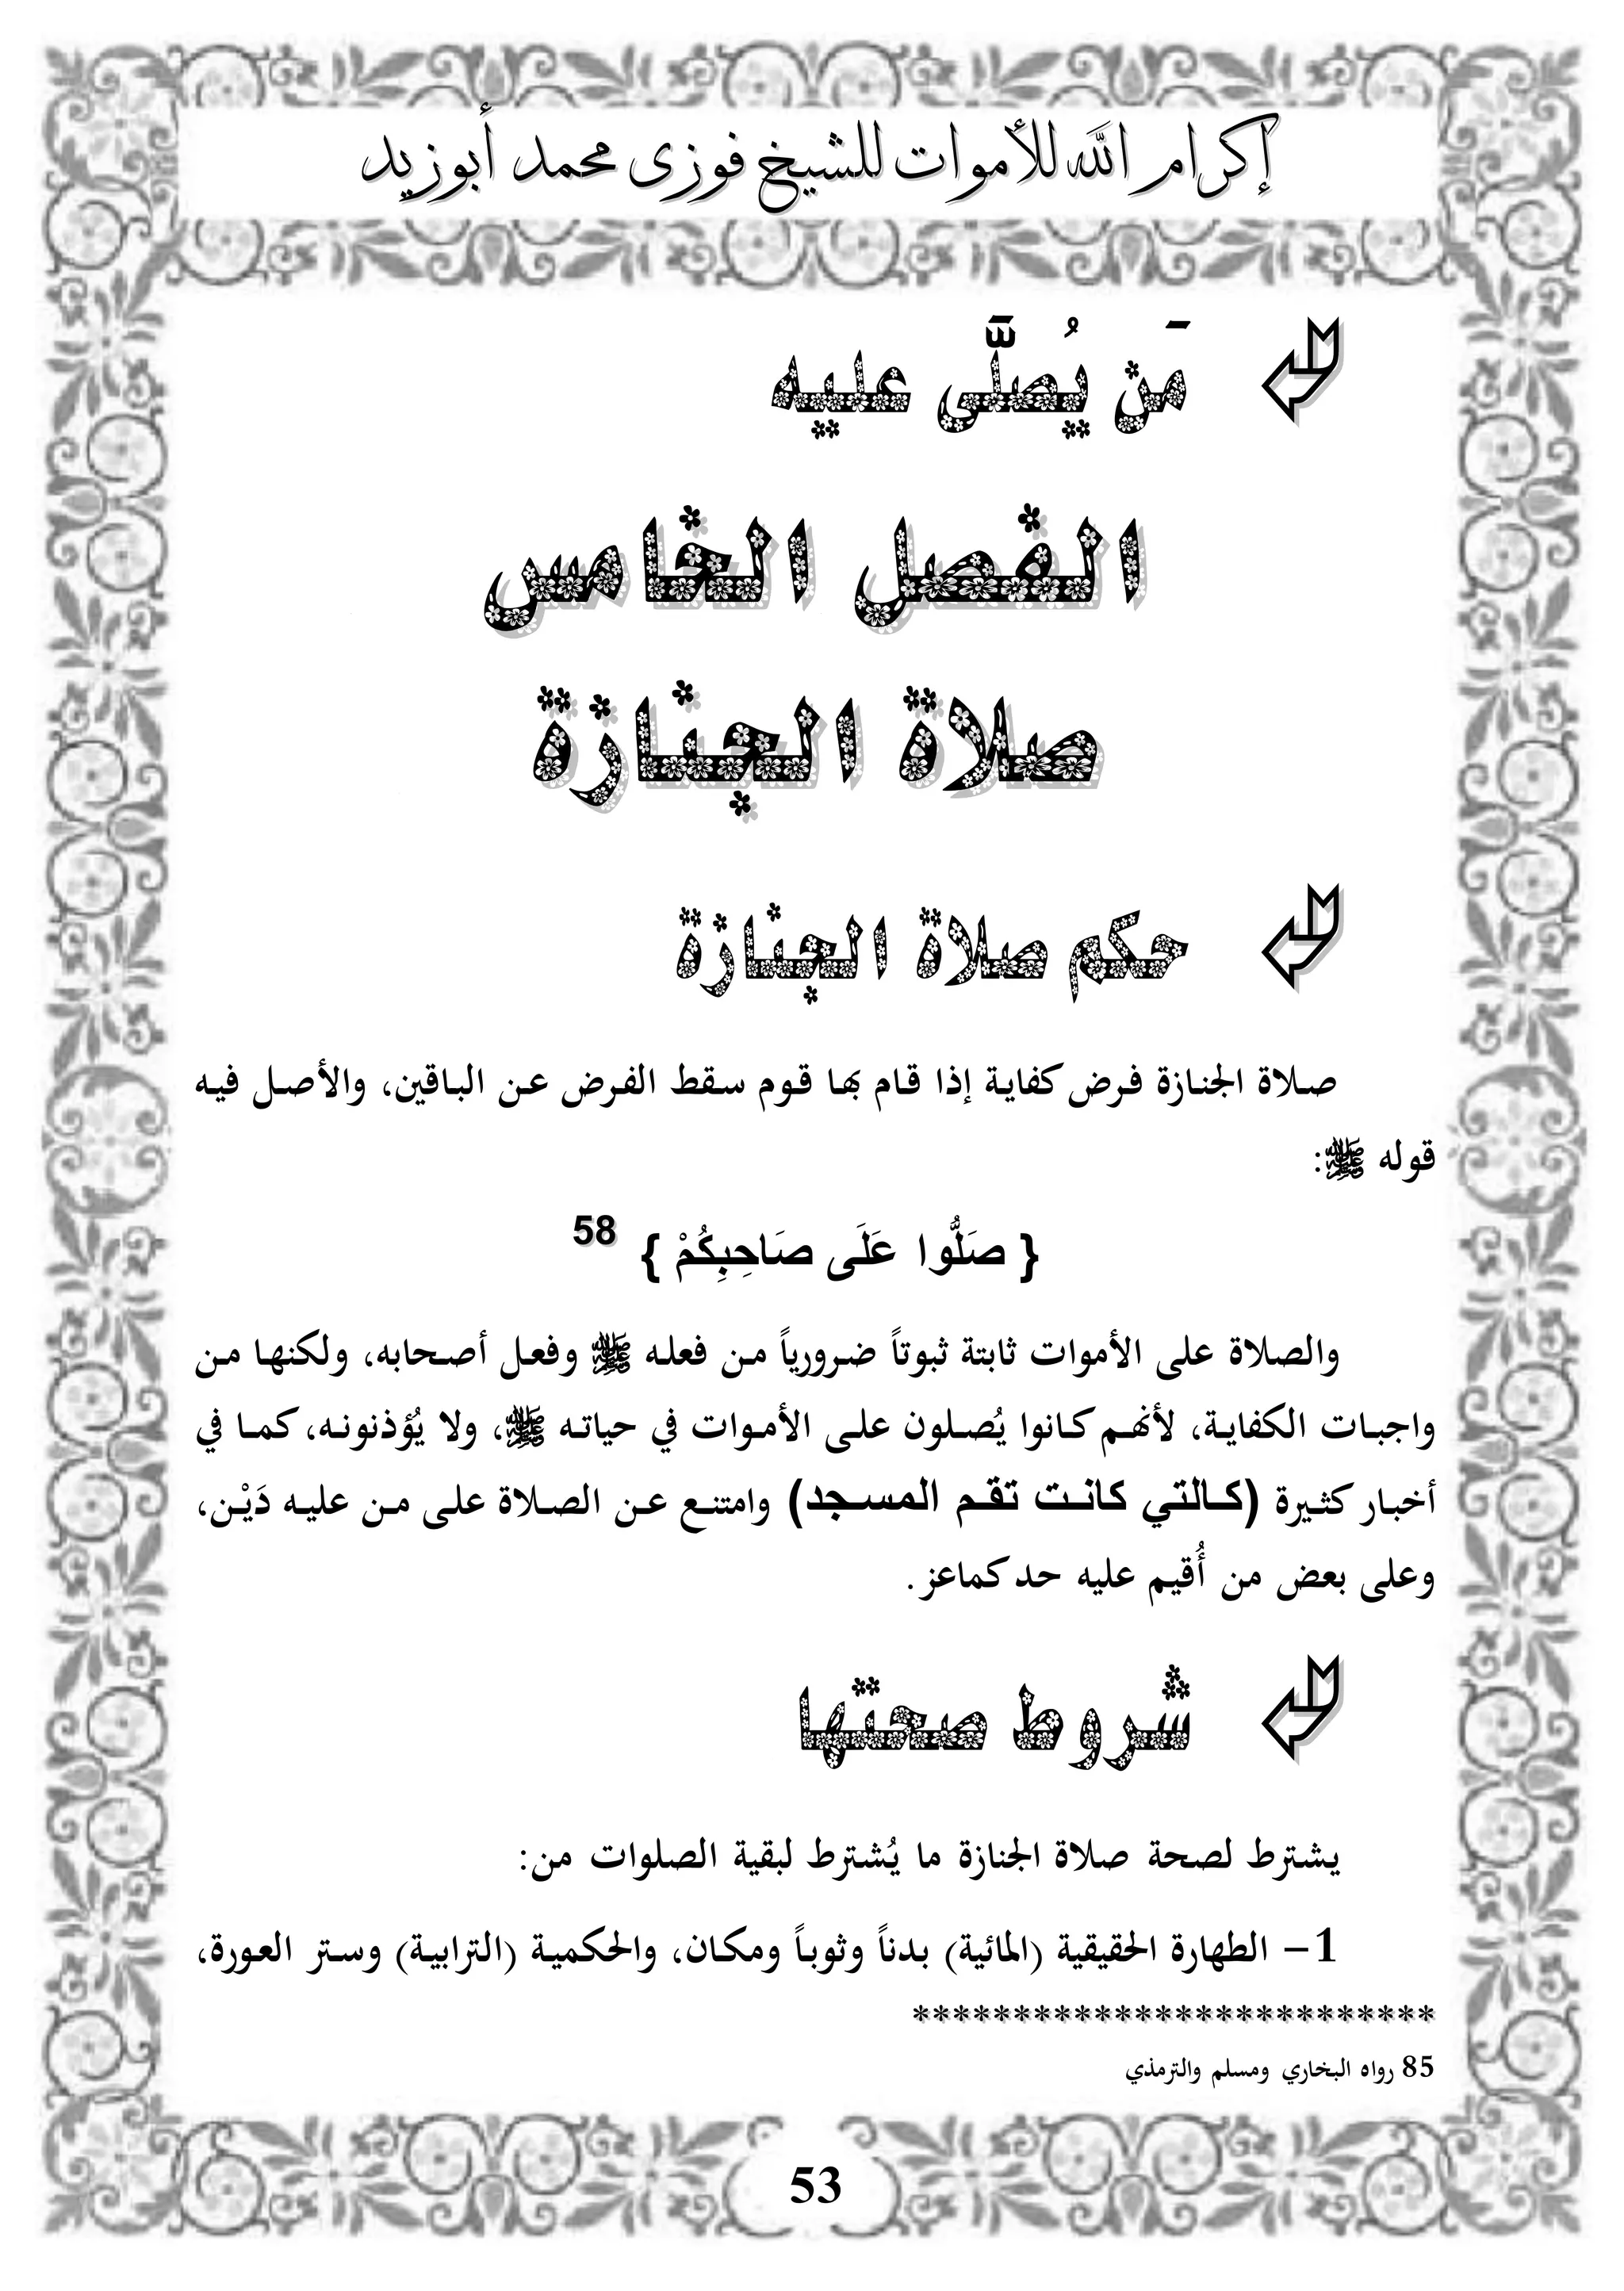 إكرام الله للأموات للشيخ فوزى محمد أبوزيد
مَن يُصلَّى عليه
الفصل الخامس
صلاة الجنازة
حكم صلاة الجنازة
صلاة الجنازة فرض كفاية إذا قام بها قوم سقط الفرض عن الباقين، والأصل فيه
قوله ﷺ:
{ صَلُّوا عَلَى صَاحِبِكُمْ } 58
والصلاة على الأموات ثابتة ثبوتاً ضرورياً من فعله ﷺ وفعل أصحابه، ولكنها من
واجبات الكفاية، لأنهم كانوا يُصلون على الأموات في حياته ﷺ، ولا يُؤذنونه، كما في
أخبار كثيرة (كالتي كانت تقم المسجد) وامتنع عن الصلاة على من عليه دَيْن،
وعلى بعض من أُقيم عليه حد كماعز.
شروط صحتها
يشترط لصحة صلاة الجنازة ما يُشترط لبقية الصلوات من:
1- الطهارة الحقيقية (المائية) بدناً وثوباً ومكان، والحكمية (الترابية) وستر العورة،
**************************
85 رواه البخاري ومسلم والترمذي
53